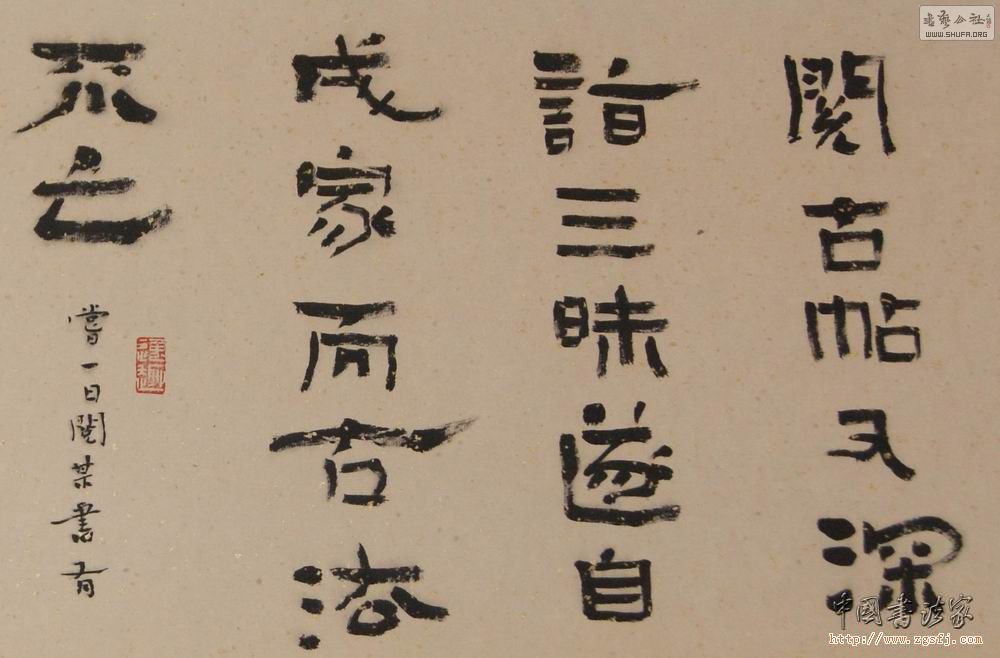 閱古帖又深
詣三昧遂自
成家而古法
不亡
嘗一日閱某書有
书艺公社
WWW.SHUFA.ORG
中国书法家
http://www.zgsfj.com